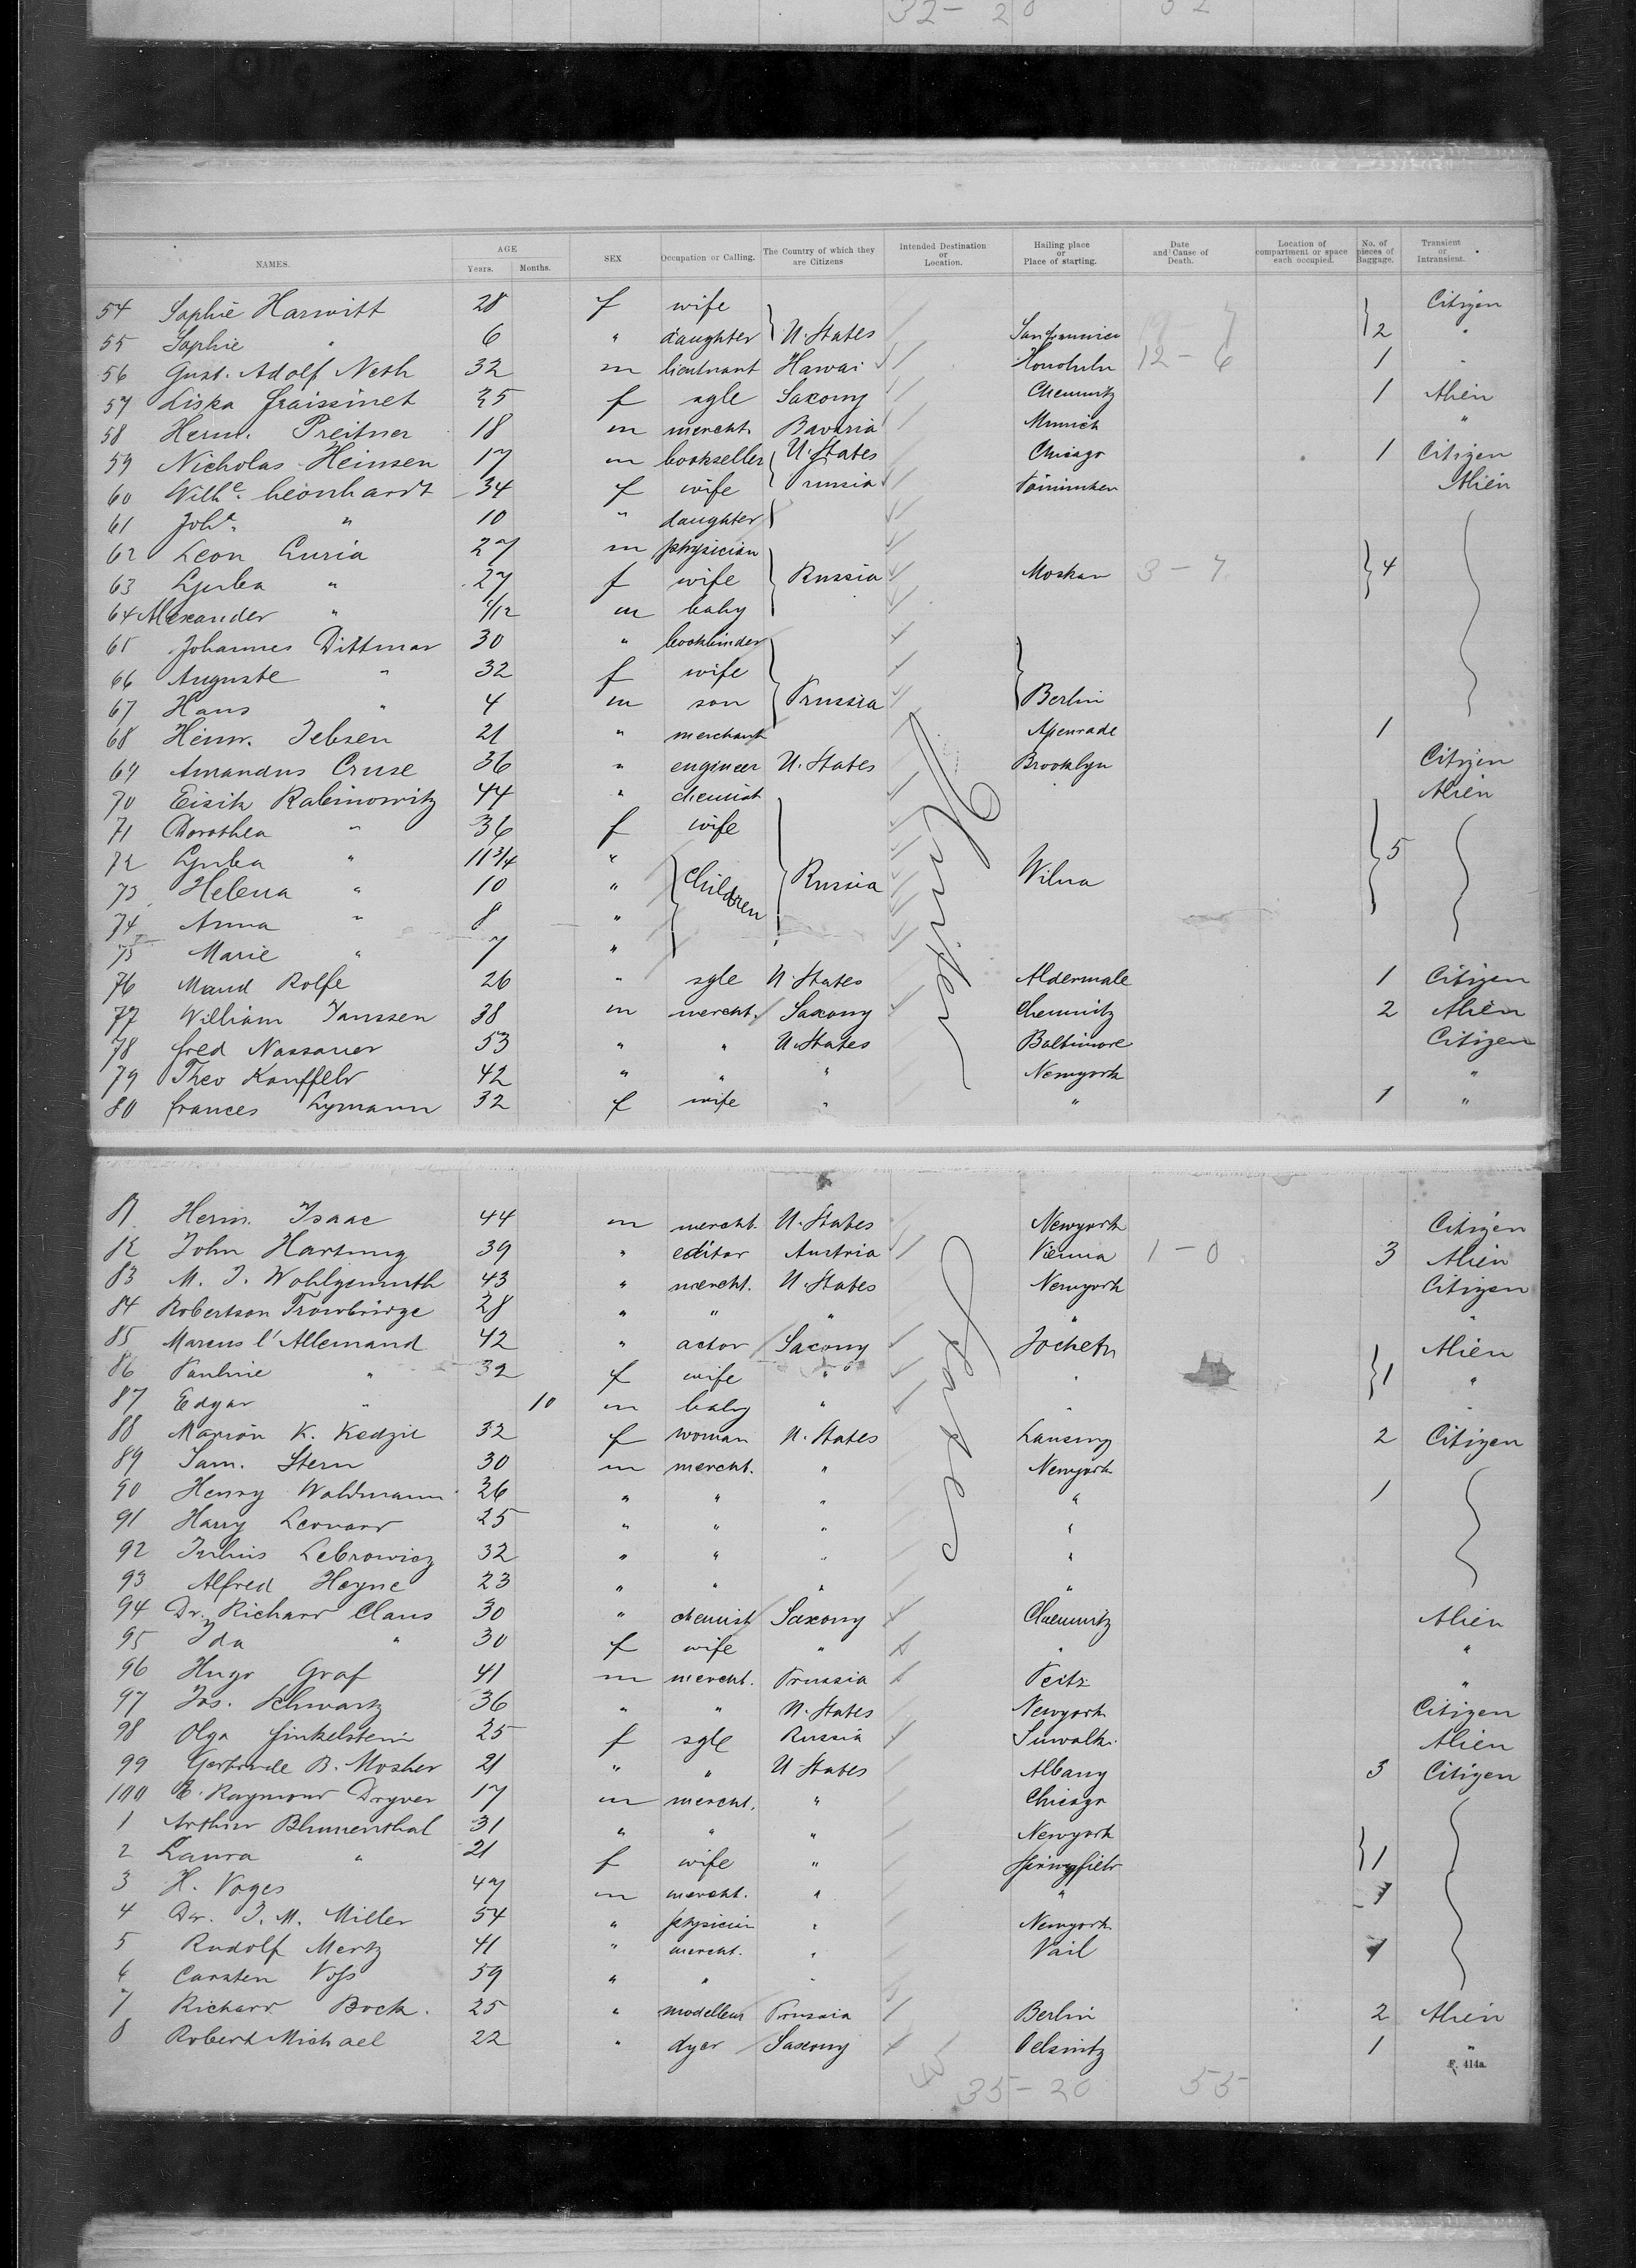 32- 20 32
NAMES. AGE Years. Months. SEX Occupation or Calling. The Country of which they are Citizens Intended Destination or Location. Hailing place or Place of starting. Date and Cause of Death. Location of compartment or space each occupied. No. of pieces of Baggage. Transient or Intransient.
54 Sophie Harwitt 28 f wife Citizen
55 Sophie " 6 " daughter U. States San francisco 2 "
56 Gust. Adolf Neth 32 m lieutnant Hawai Honolulu 12 - 6 1 "
57 Liska fraissinet 35 f sgle Saxony Chemnitz 1 Alien
58 Herm. Preitner 18 m mercht. Bavaria Munich "
59 Nicholas Heinsen 17 m bookseller U. States Chicago 1 Citizen
60 Wilhe. Leonhardt 34 f wife Prussia Alien
61 Joha. " 10 " daughter
62 Leon Luria 27 m physician
63 Ljuba " 27 f wife Russia Moskau 3 - 7 4
64 Alexander " /12 m baby
65 Johannes Dittmar 30 " bookbinder
66 Auguste " 32 f wife
67 Hans " 4 m son Prussia Berlin
68 Heinr. Jebsen 21 " merchant Apenrade 1
69 Amandus Cruse 36 " engineer U. States Brooklyn Citizen
70 Eisik Rabinowitz 44 " chemist Alien
71 Dorothea " 36 f wife
72 Ljuba " 11 3/4 " children Russia Wilna 5
73 Helena " 10 "
74 Anna " 8 "
75 Marie " 7 "
76 Maud Rolfe 26 " sgle U. States Aldermale 1 Citizen
77 William Janssen 38 m mercht. Saxony Chemnitz 2 Alien
78 fred Nassauer 53 " " U. States Baltimore Citizen
79 Theo Kauffeld 42 " " " Newyork "
80 frances Lymann 32 f wife " " 1 "
81 Herm. Isaac 44 m mercht. U. States Newyork Citizen
82 John Hartung 39 " editor Austria Vienna 1 - 0 3 Alien
83 M. J. Wohlgemuth 43 " mercht. U. States Newyork Citizen
84 Robertson Trowbridge 28 " " " "
85 Marcus l'Allemand 42 " actor Saxony Jocketa Alien
86 Pauline " 32 f wife " " 1 "
87 Edgar " 10 m baby " " "
88 Marion K. Kedzie 32 f woman U. States Lansing 2 Citizen
89 Sam. Stern 30 m mercht. " Newyork
90 Henry Waldmann 26 " " " " 1
91 Harry Leonard 25 " " " "
92 Julius Lebrowicz 32 " " " "
93 Alfred Heyne 23 " " " "
94 Dr. Richard Claus 30 " chemist Saxony Chemnitz Alien
95 Ida " 30 f wife " " "
96 Hugo Graf 41 m mercht. Prussia Peitz "
97 Jos. Schwartz 36 " " U. States Newyork Citizen
98 Olga finkelstein 25 f sgle Russia Suwalk. Alien
99 Gertrude B. Mosher 21 " " U States Albany 3 Citizen
100 E. Raymond Dryver 17 m mercht. " Chicago
1 Arthur Blumenthal 31 " " " Newyork
2 Laura " 21 f wife " Springfield 1
3 H. Voges 47 m mercht. " " 1
4 Dr. J. M. Miller 54 " physician " Newyork
5 Rudolf Mertz 41 " mercht. " Vail 1
6 Carsten Voss 59 " " "
7 Richard Bock. 25 " modelleur Prussia Berlin 2 Alien
8 Robert Michael 22 " dyer Saxony Oelsnitz 1 "
F. 414a.
35 - 20 55